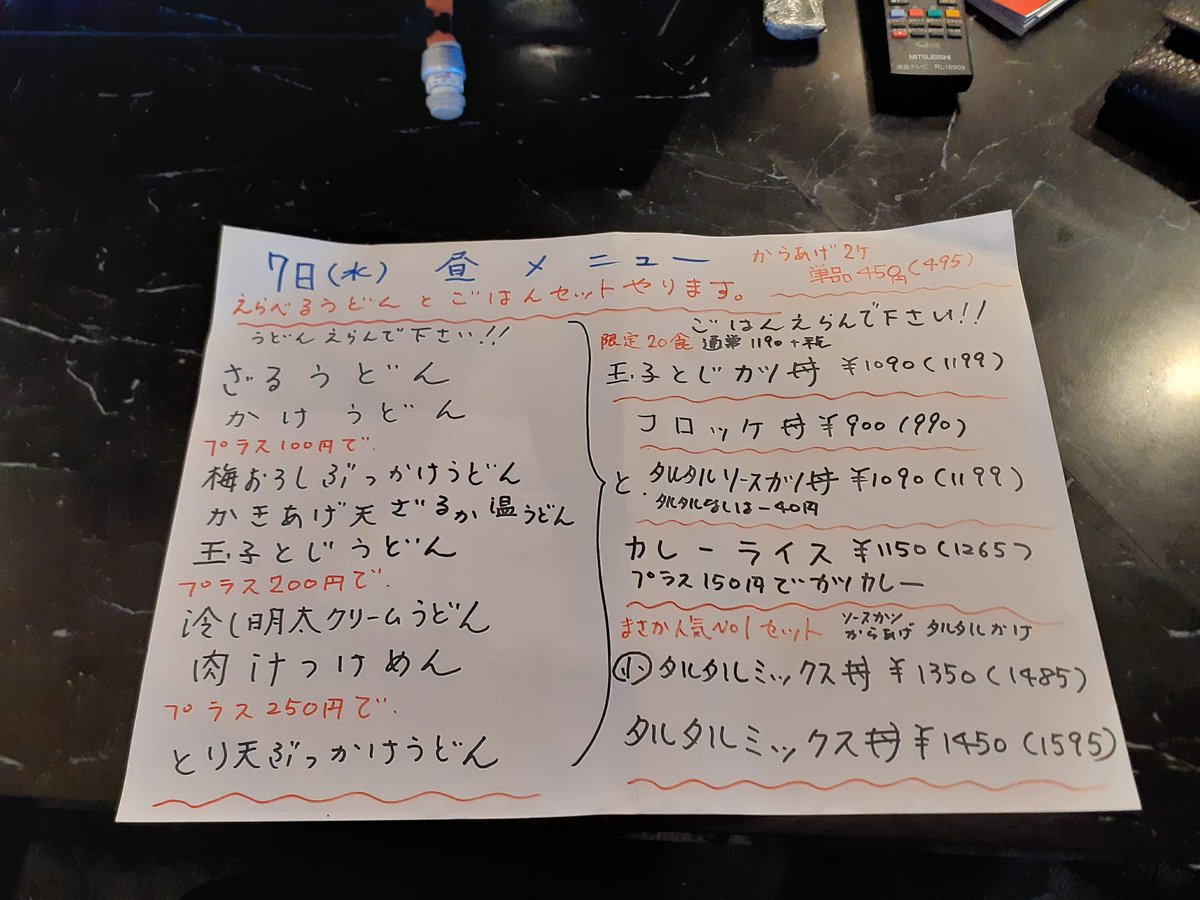 MITSUBISHI
液晶テレビ RL18909
7日(水) 昼メニュー
からあげ2ケ
単品450円(495)
えらべるうどんとごはんセットやります。
うどんえらんで下さい!!
ざるうどん
かけうどん
プラス100円で
梅おろしぶっかけうどん
かきあげ天ざるか温うどん
玉子とじうどん
プラス200円で
冷し明太クリームうどん
肉汁つけめん
プラス250円で
とり天ぶっかけうどん
と
ごはんえらんで下さい!!
限定20食 通常1190+税
玉子とじカツ丼 ¥1090(1199)
コロッケ丼 ¥900(990)
タルタルソースカツ丼 ¥1090(1199)
タルタルなしは-40円
カレーライス ¥1150(1265)
プラス150円でカツカレー
まさか人気No1セット
ソースカツ
からあげ タルタルかけ
小 タルタルミックス丼 ¥1350(1485)
タルタルミックス丼 ¥1450(1595)